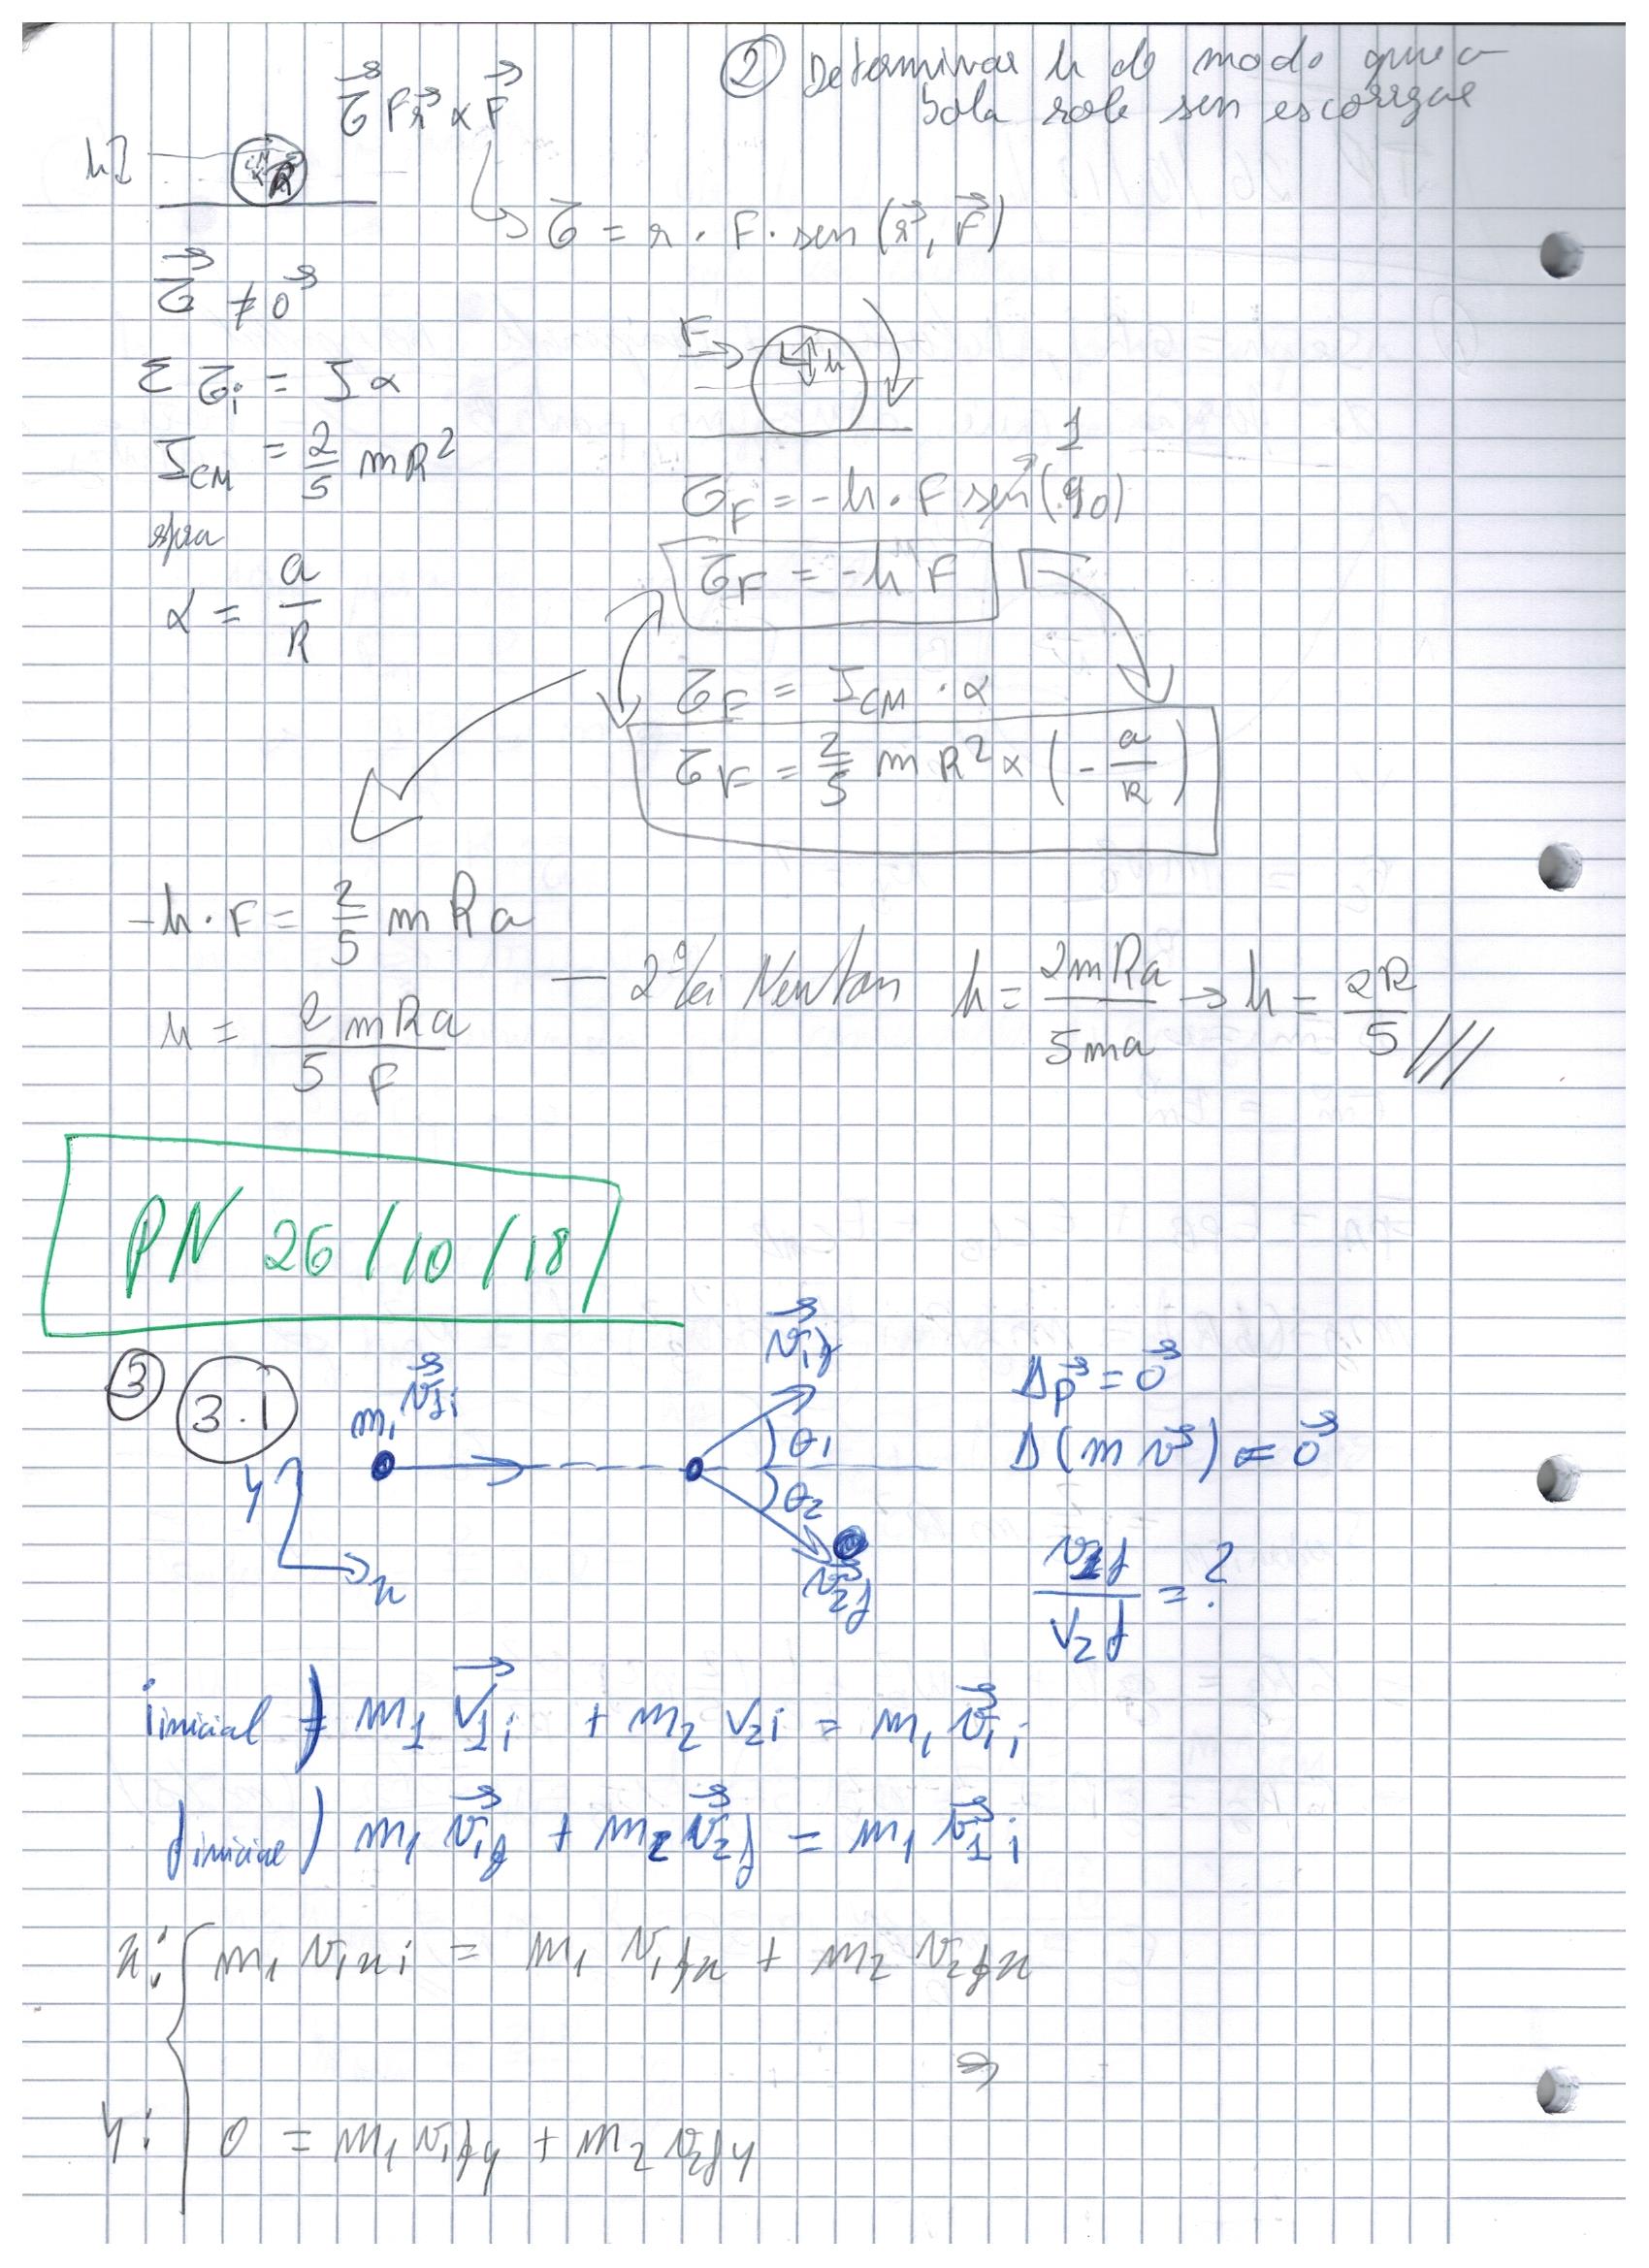 ② Determinar h de modo que a
bola role sem escorregar
τ⃗ F r⃗ × F⃗
h
R
↳ τ = r · F · sen (r⃗, F⃗)
τ⃗ ≠ 0⃗
Σ τi = I α
F
h
I_CM = 2/5 m R²
1
τ_F = -h · F sen (90)
α = a/R
τ_F = -h F
τ_F = I_CM · α
τ_F = 2/5 m R² × (- a/R)
-h · F = 2/5 m R a
h = 2 m R a / 5 F
— 2ª lei Newton h = 2mRa / 5ma → h = 2R / 5 ///
PN 26/10/18
③ 3.1
m₁ v⃗1i
v⃗1f
θ1
θ2
v⃗2f
y
x
Δp⃗ = 0⃗
Δ(m v⃗) = 0⃗
v1f / v2f = ?
inicial) m1 v⃗1i + m2 v2i = m1 v⃗1i
m1 v⃗1f + m2 v⃗2f = m1 v⃗1i
x: { m1 v1xi = m1 v1fx + m2 v2fx
⇒
y: { 0 = m1 v1fy + m2 v2fy